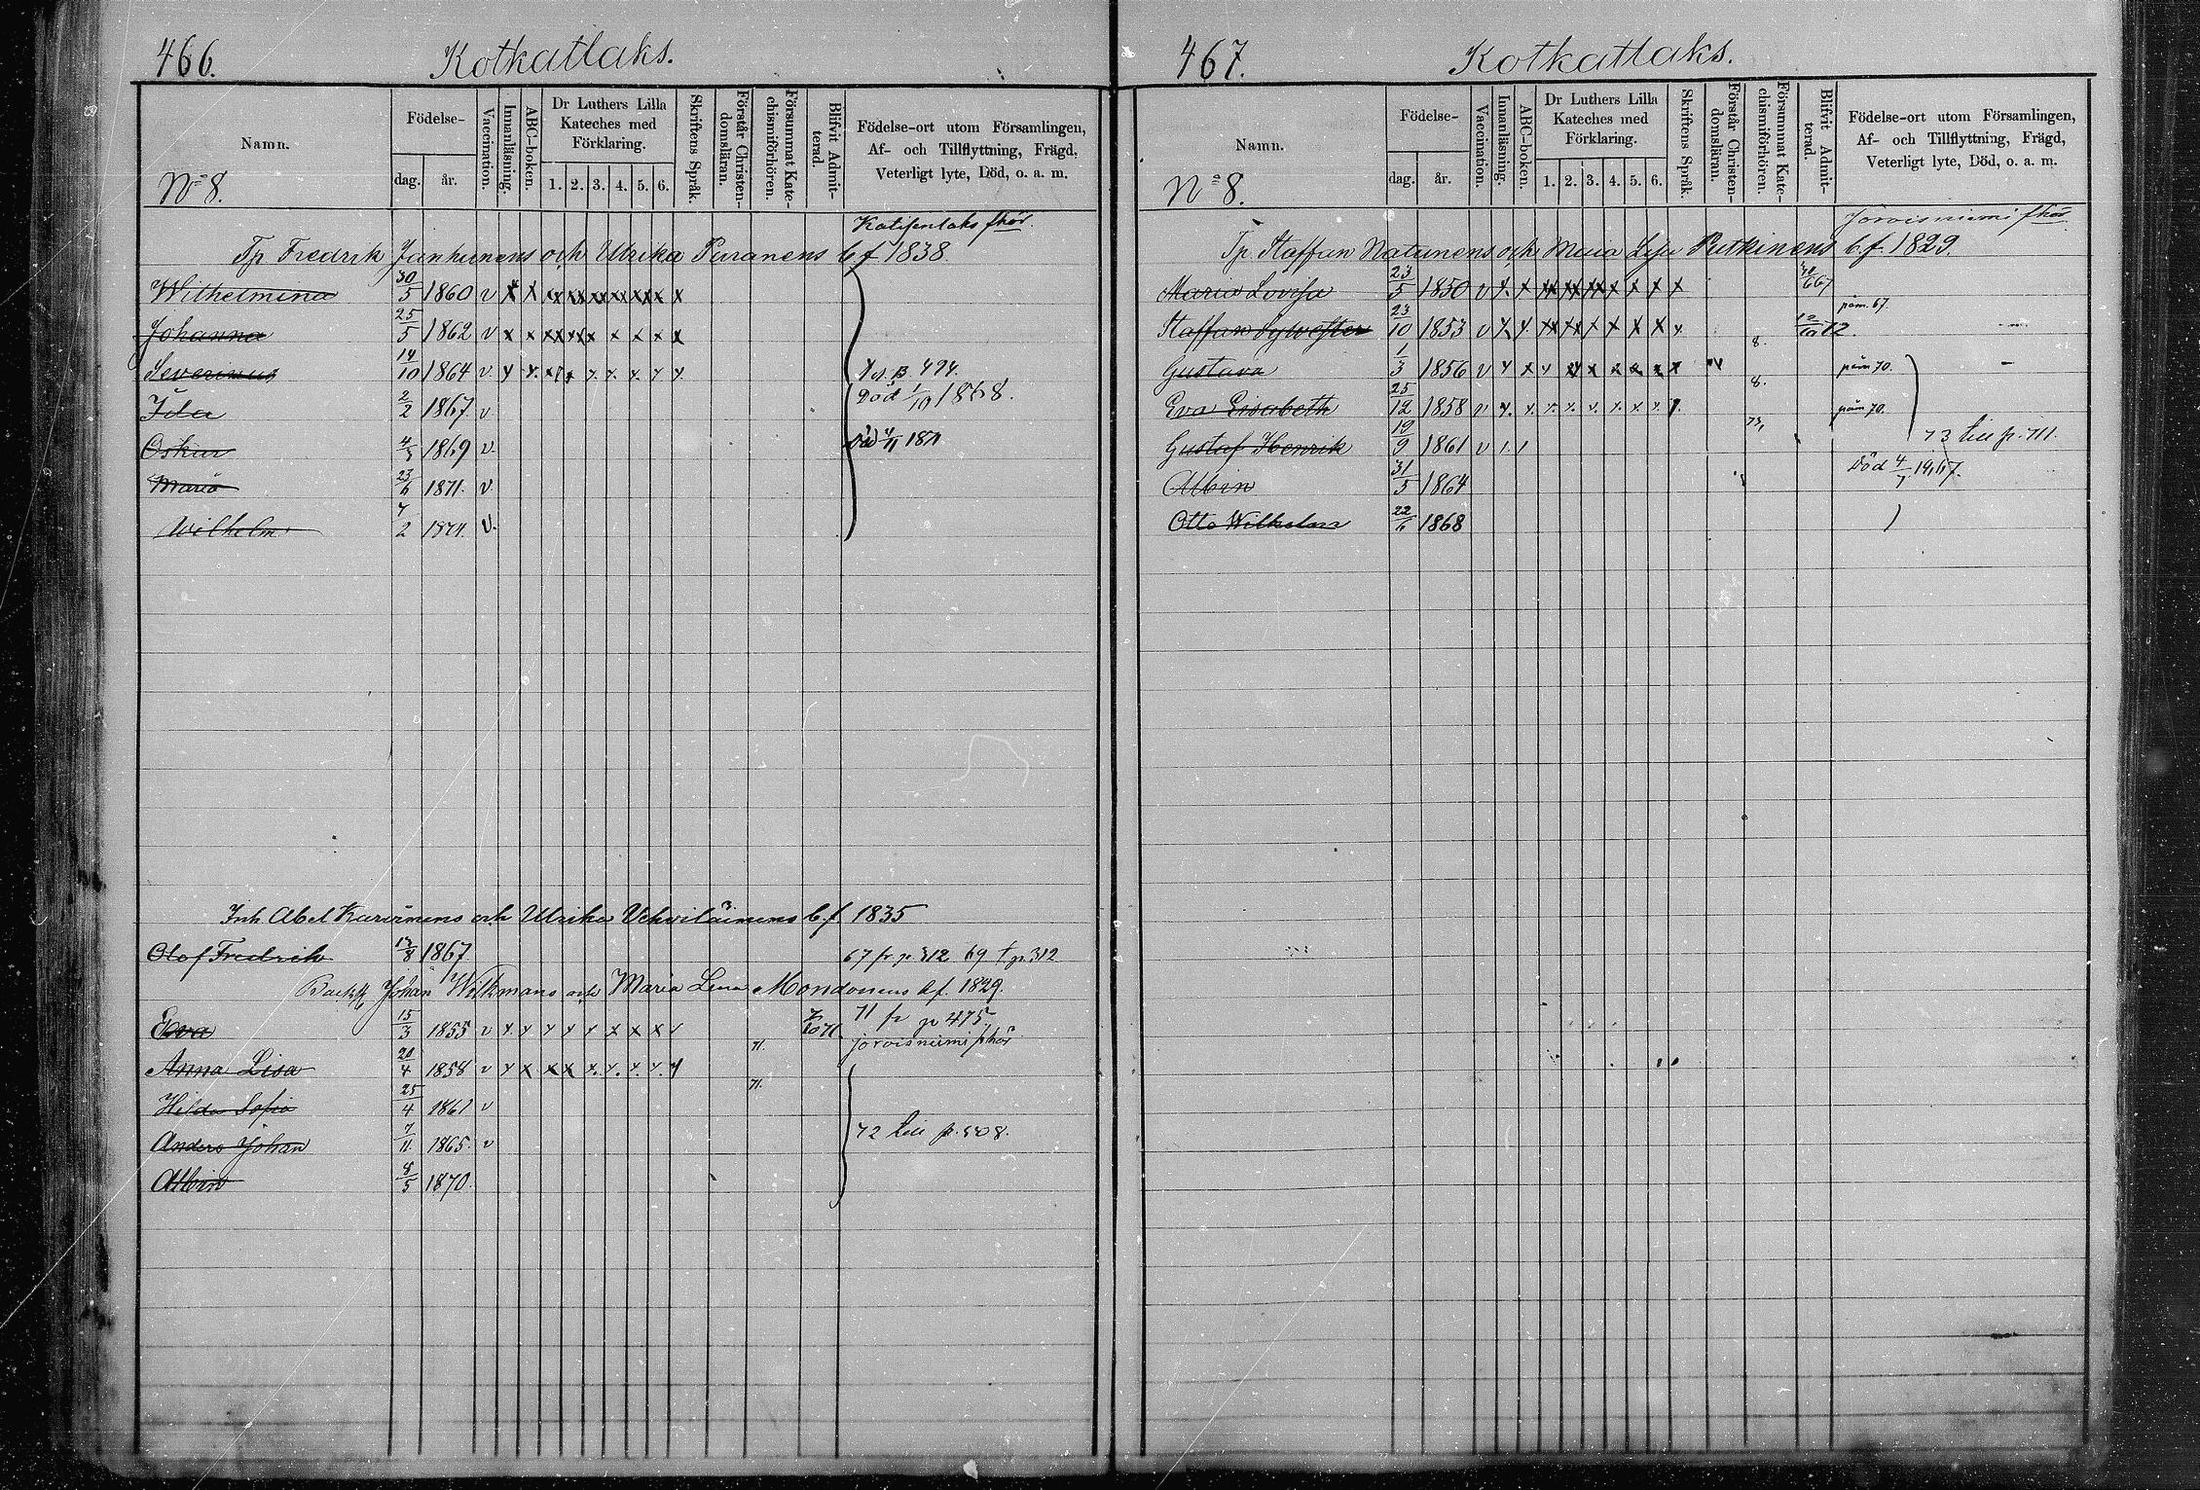 466. Kotkatlaks.
Namn. Födelse- dag. år. Vaccination. Innanläsning. ABC-boken. Dr Luthers Lilla Kateches med Förklaring. 1. 2. 3. 4. 5. 6. Skriftens Språk. Förstår Christen-domsläran. Försummat Kate-chismiförhören. Blifvit Admit-terad. Födelse-ort utom Församlingen, Af- och Tillflyttning, Frägd, Veterligt lyte, Död, o. a. m.
No 8.
Tp Fredrik och Ulrika Puranens b f 1838.
Wilhelmina 30/5 1860 v x x xx xx xx xx xx x x
Johanna 25/5 1862 v x x xx xx x x x x x
Severinus 14/10 1864 v
Ida 2/2 1867 v Död 1/10 1868.
Oskar 1869 v. Död 4/11 1871
Maria 23/6 1871. v.
Wilhelm 7/2 1874. v.
Inh Abel och Ulrika Vehviläinens b f 1835
Olof Fredrik 1867 67 fr p. 312 69 t p. 312
Johan Wilkmans och Maria Lena Mondonens b f. 1829.
Eva 15/3 1855 v 71 fr p 475,
Anna Lisa 20/4 1858 v 71.
Hilda Sofia 25/4 1861 v 71.
Anders Johan 7/11. 1865. v 72 till p. 508.
Albin 8/5 1870.
467. Kotkatlaks.
Namn. Födelse- dag. år. Vaccination. Innanläsning. ABC-boken. Dr Luthers Lilla Kateches med Förklaring. 1. 2. 3. 4. 5. 6. Skriftens Språk. Förstår Christen-domsläran. Försummat Kate-chismiförhören. Blifvit Admit-terad. Födelse-ort utom Församlingen, Af- och Tillflyttning, Frägd, Veterligt lyte, Död, o. a. m.
No 8.
Tp. Staffan Natunens och Maria Lisa Putkinens b. f. 1829.
Maria Lovisa 23/5 1850 v
Staffan Sylvester 23/10 1853 v
Gustava 1/3 1856 v 8.
Eva Lisabeth 25/12 1858 v 8.
Gustaf Henrik 19/9 1861 v 73 till p. 711.
Albin 31/5 1864 Död 4/7 1867.
Otto Wilhelm 1868